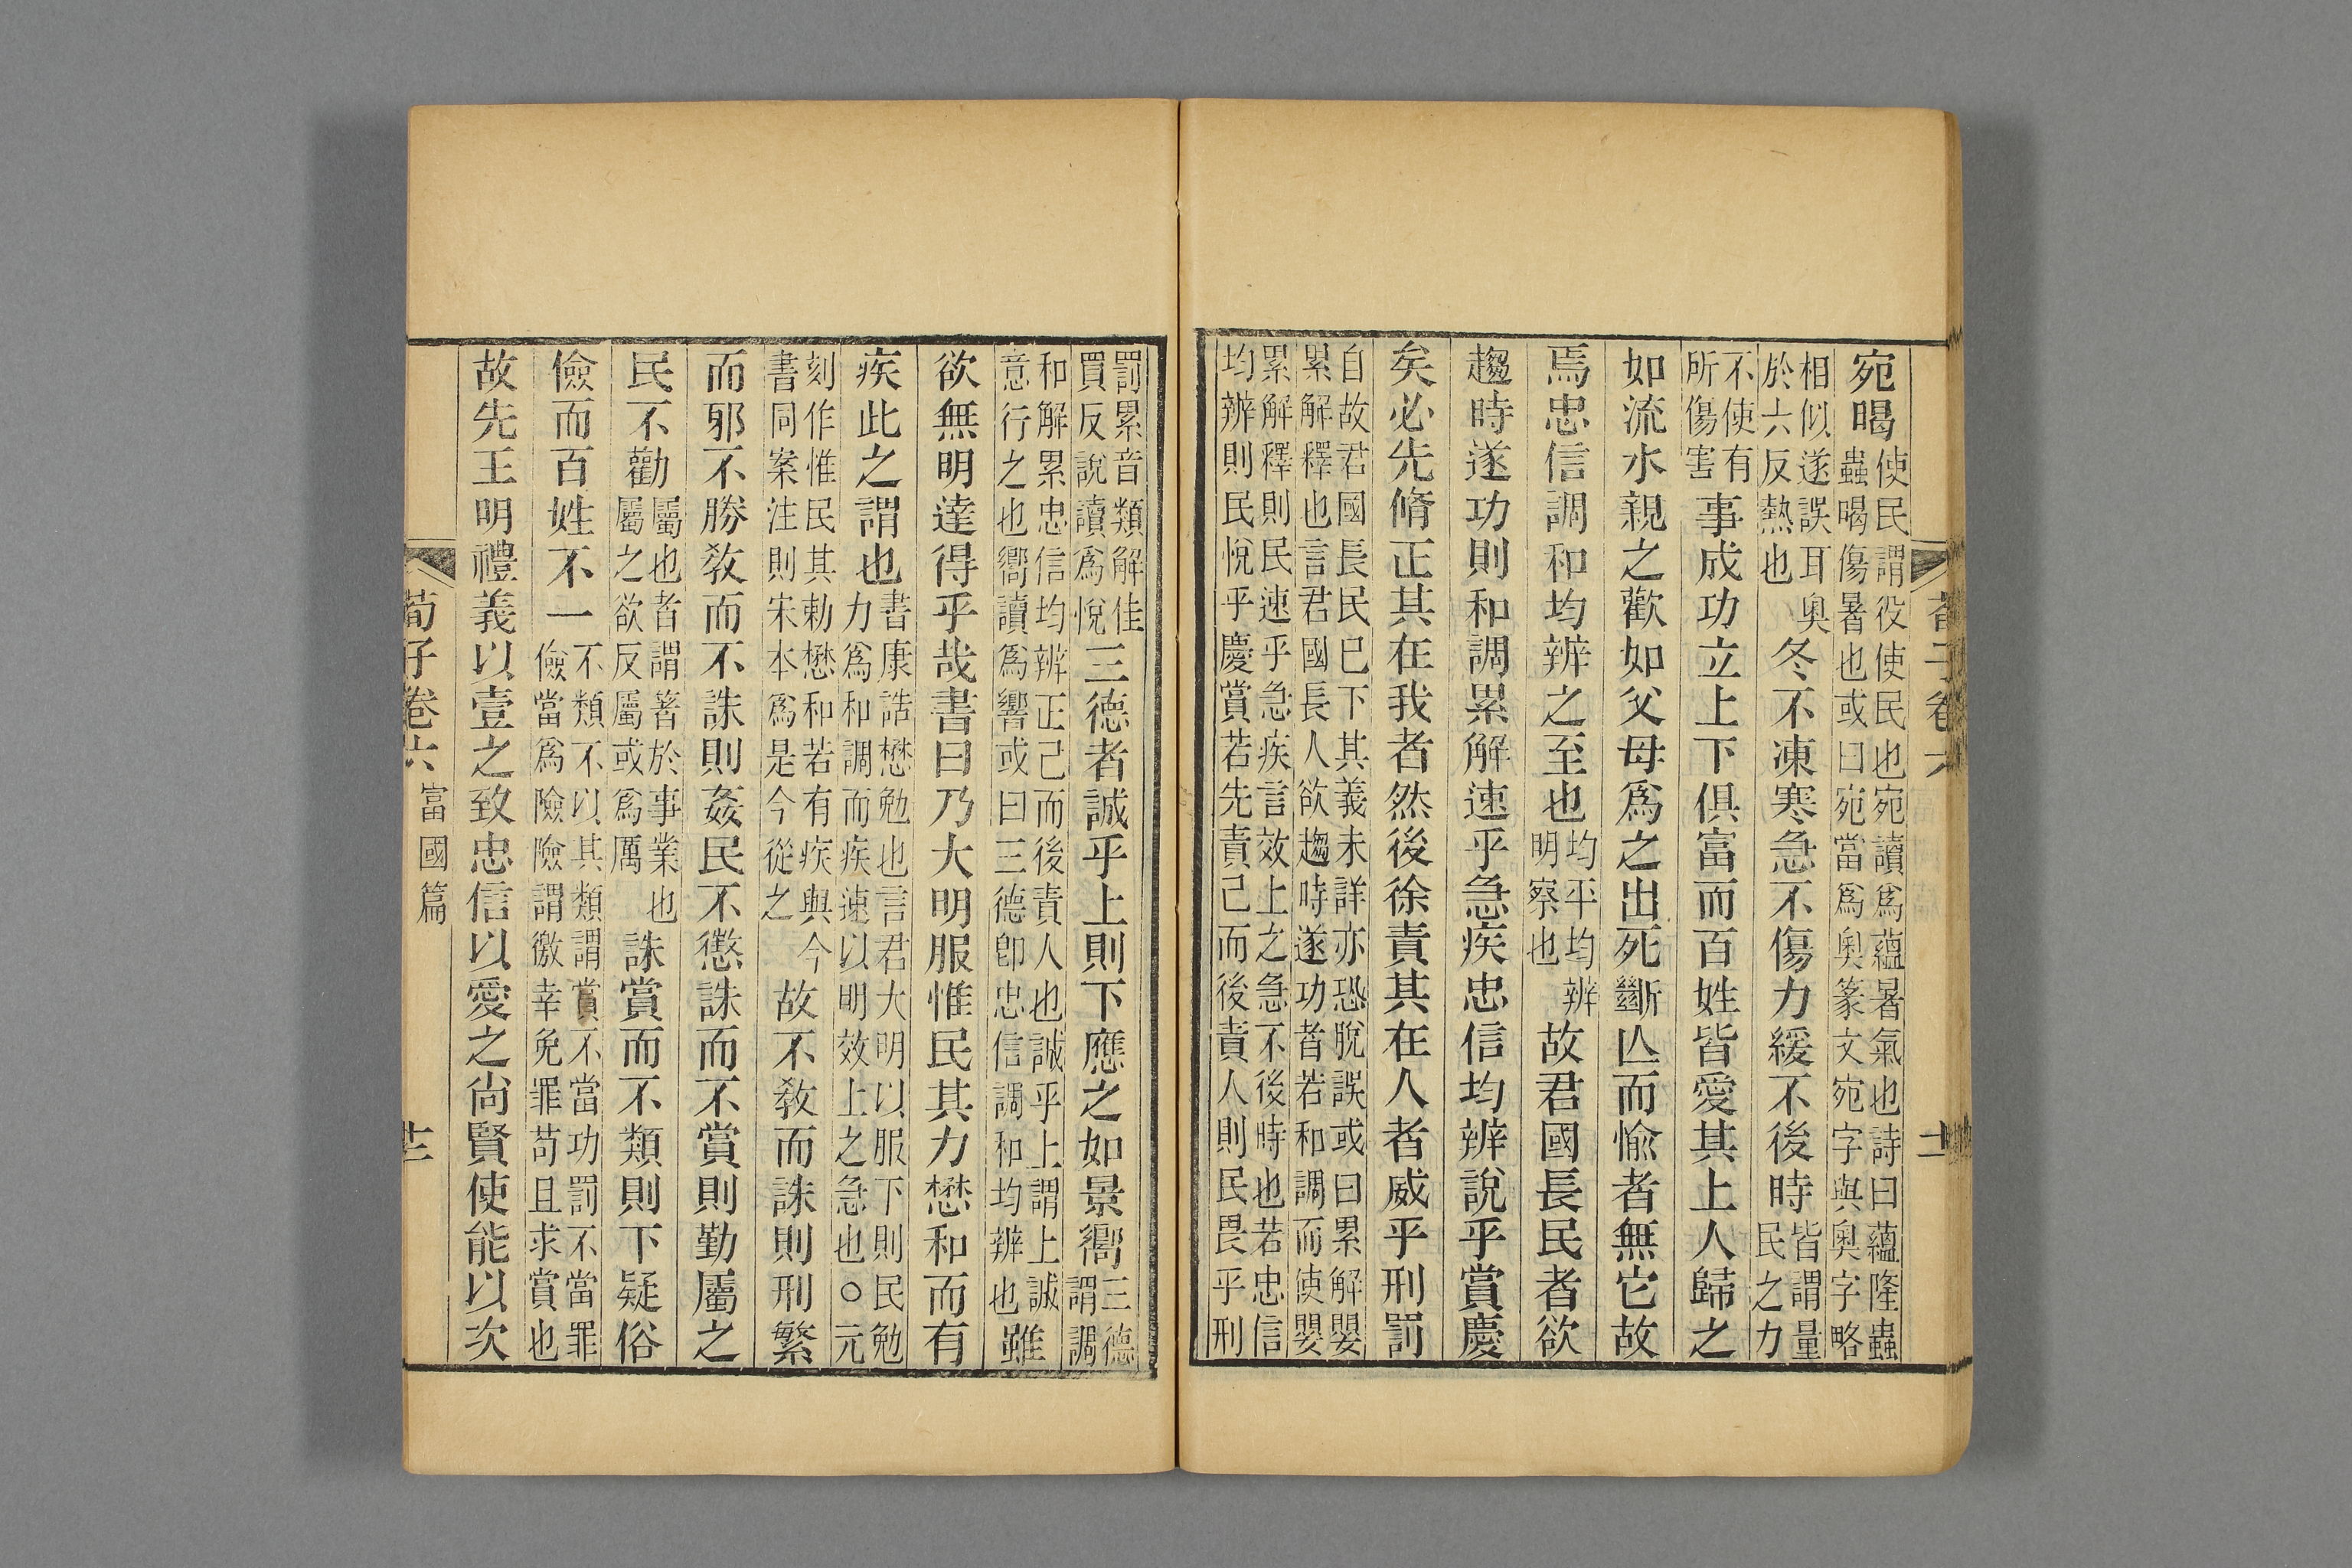 荀子卷六
十二
宛暍使民謂役使民也宛讀爲蘊暑氣也詩曰蘊隆蟲
蟲暍傷暑也或曰宛當爲奥篆文宛字與奥字略
相似遂誤耳奥
於六反熱也冬不凍寒急不傷力緩不後時皆謂量
民之力
不使有
所傷害事成功立上下俱富而百姓皆愛其上人歸之
如流水親之歡如父母爲之出死斷亾而愉者無它故
焉忠信調和均辨之至也均平均辨
明察也故君國長民者欲
趨時遂功則和調累解速乎急疾忠信均辨說乎賞慶
矣必先脩正其在我者然後徐責其在人者威乎刑罰
自故君國長民巳下其義未詳亦恐脫誤或曰累解嬰
累解釋也言君國長人欲趨時遂功者若和調而使嬰
累解釋則民速乎急疾言效上之急不後時也若忠信
均辨則民悅乎慶賞若先責己而後責人則民畏乎刑
罰累音類解佳
買反說讀爲悅三德者誠乎上則下應之如景嚮三德
謂調
和解累忠信均辨正己而後責人也誠乎上謂上誠
意行之也嚮讀爲響或曰三德卽忠信調和均辨也雖
欲無明達得乎哉書曰乃大明服惟民其力懋和而有
疾此之謂也書康誥懋勉也言君大明以服下則民勉
力爲和調而疾速以明效上之急也○元
刻作惟民其勅懋和若有疾與今
書同案注則宋本爲是今從之故不敎而誅則刑繁
而邪不勝敎而不誅則姦民不懲誅而不賞則勤屬之
民不勸屬也者謂著於事業也
屬之欲反屬或爲厲誅賞而不類則下疑俗
儉而百姓不一不類不以其類謂賞不當功罰不當罪
儉當爲險險謂徼幸免罪苟且求賞也
故先王明禮義以壹之致忠信以愛之尙賢使能以次
荀子卷六 富國篇